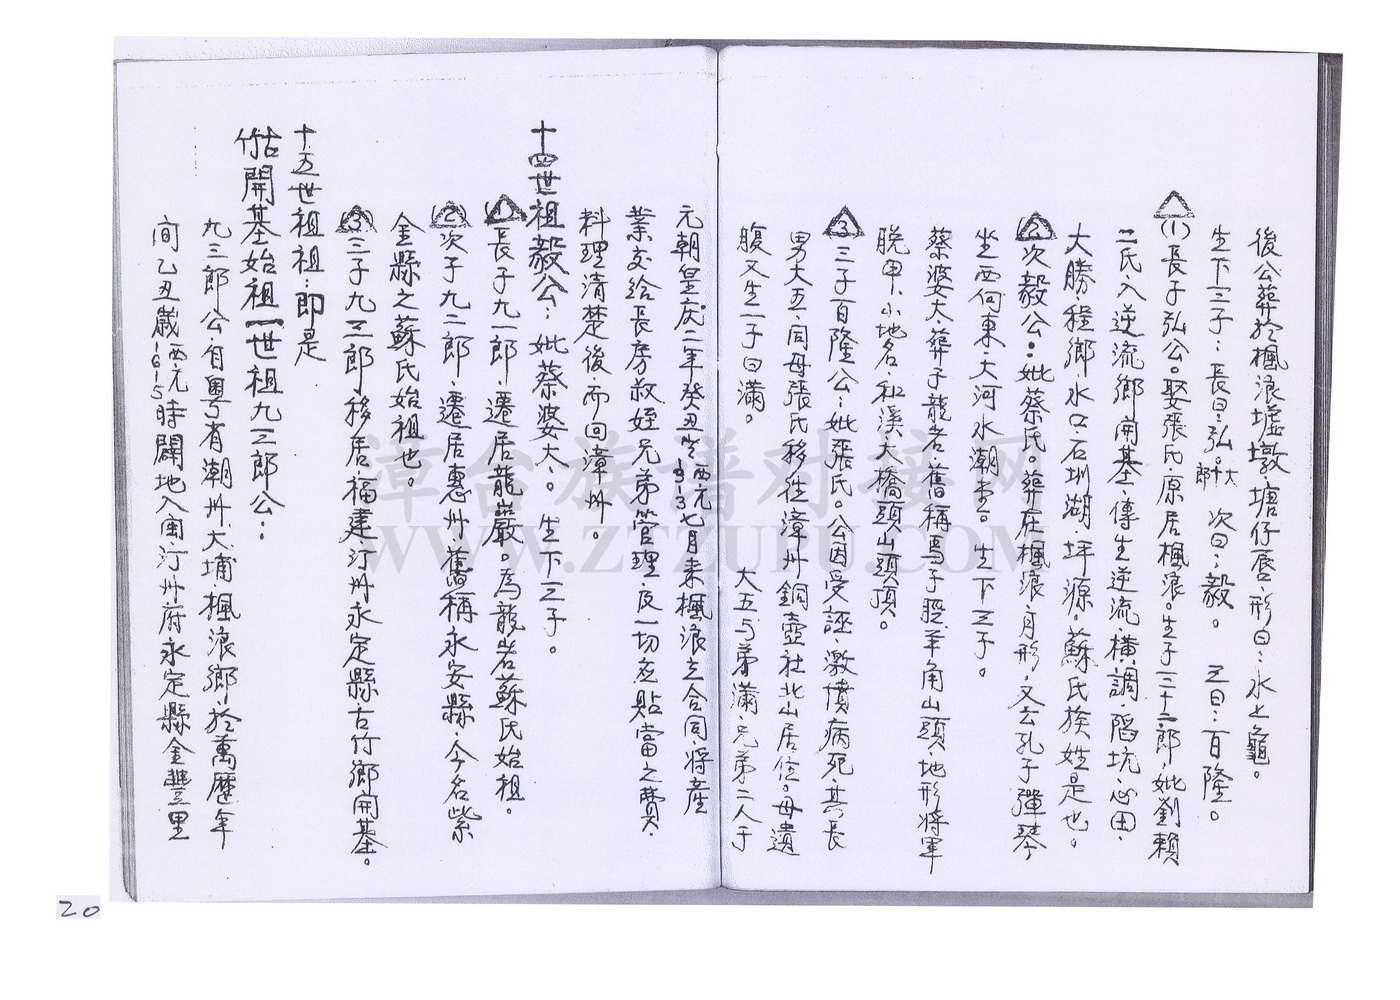 後公葬於楓浪墟墩.塘仔唇.形曰:水上龜。
生下三子:長曰:弘。十大郎 次曰:毅。 三曰:百隆。
(1)長子弘公。娶張氏.原居楓浪。生子二十二郎.妣劉賴
二氏.入逆流鄉開基.傳生逆流.橫調.陷坑.心田.
大勝.程鄉.水口.石圳湖.坪源.蘇氏族姓是也。
(2)次毅公::妣蔡氏。葬在楓浪.月形.又云孔子彈琴.
坐西向東.大河水潮吉。生下三子。
蔡婆太葬子龍岩舊稱馬子股.羊角山頭.地形將軍
脫甲.小地名.和溪大橋頭山頭頂。
(3)三子百隆公:妣張氏。公因受誣.激憤病死.其長
男大五.同母張氏移往漳州銅壺社北山居住.母遺
腹又生一子曰滿。 大五与弟滿.兄弟二人于
元朝皇庆二年癸丑岁西元1313七月来楓浪立合同.将產
業交給長房叔姪兄弟管理.及一切应貼當之費.
料理清楚後而回漳州。
十四世祖毅公:妣蔡婆太。生下三子。
(1)長子九一郎.遷居龍巖。為龍岩蘇氏始祖.
(2)次子九二郎.遷居惠州.舊稱永安縣.今名紫
金縣之蘇氏始祖也。
(3)三子九三郎.移居福建汀州永定縣.古竹鄉開基。
十五世祖祖:即是
古竹開基始祖一世祖九三郎公:
九三郎公.自粵省潮州.大埔楓浪鄉.於萬歷年
间乙丑歲.西元1615時闢地入闽汀州府永定縣金豐里
漳台族譜对接网
WWW.ZTZUPU.COM
20